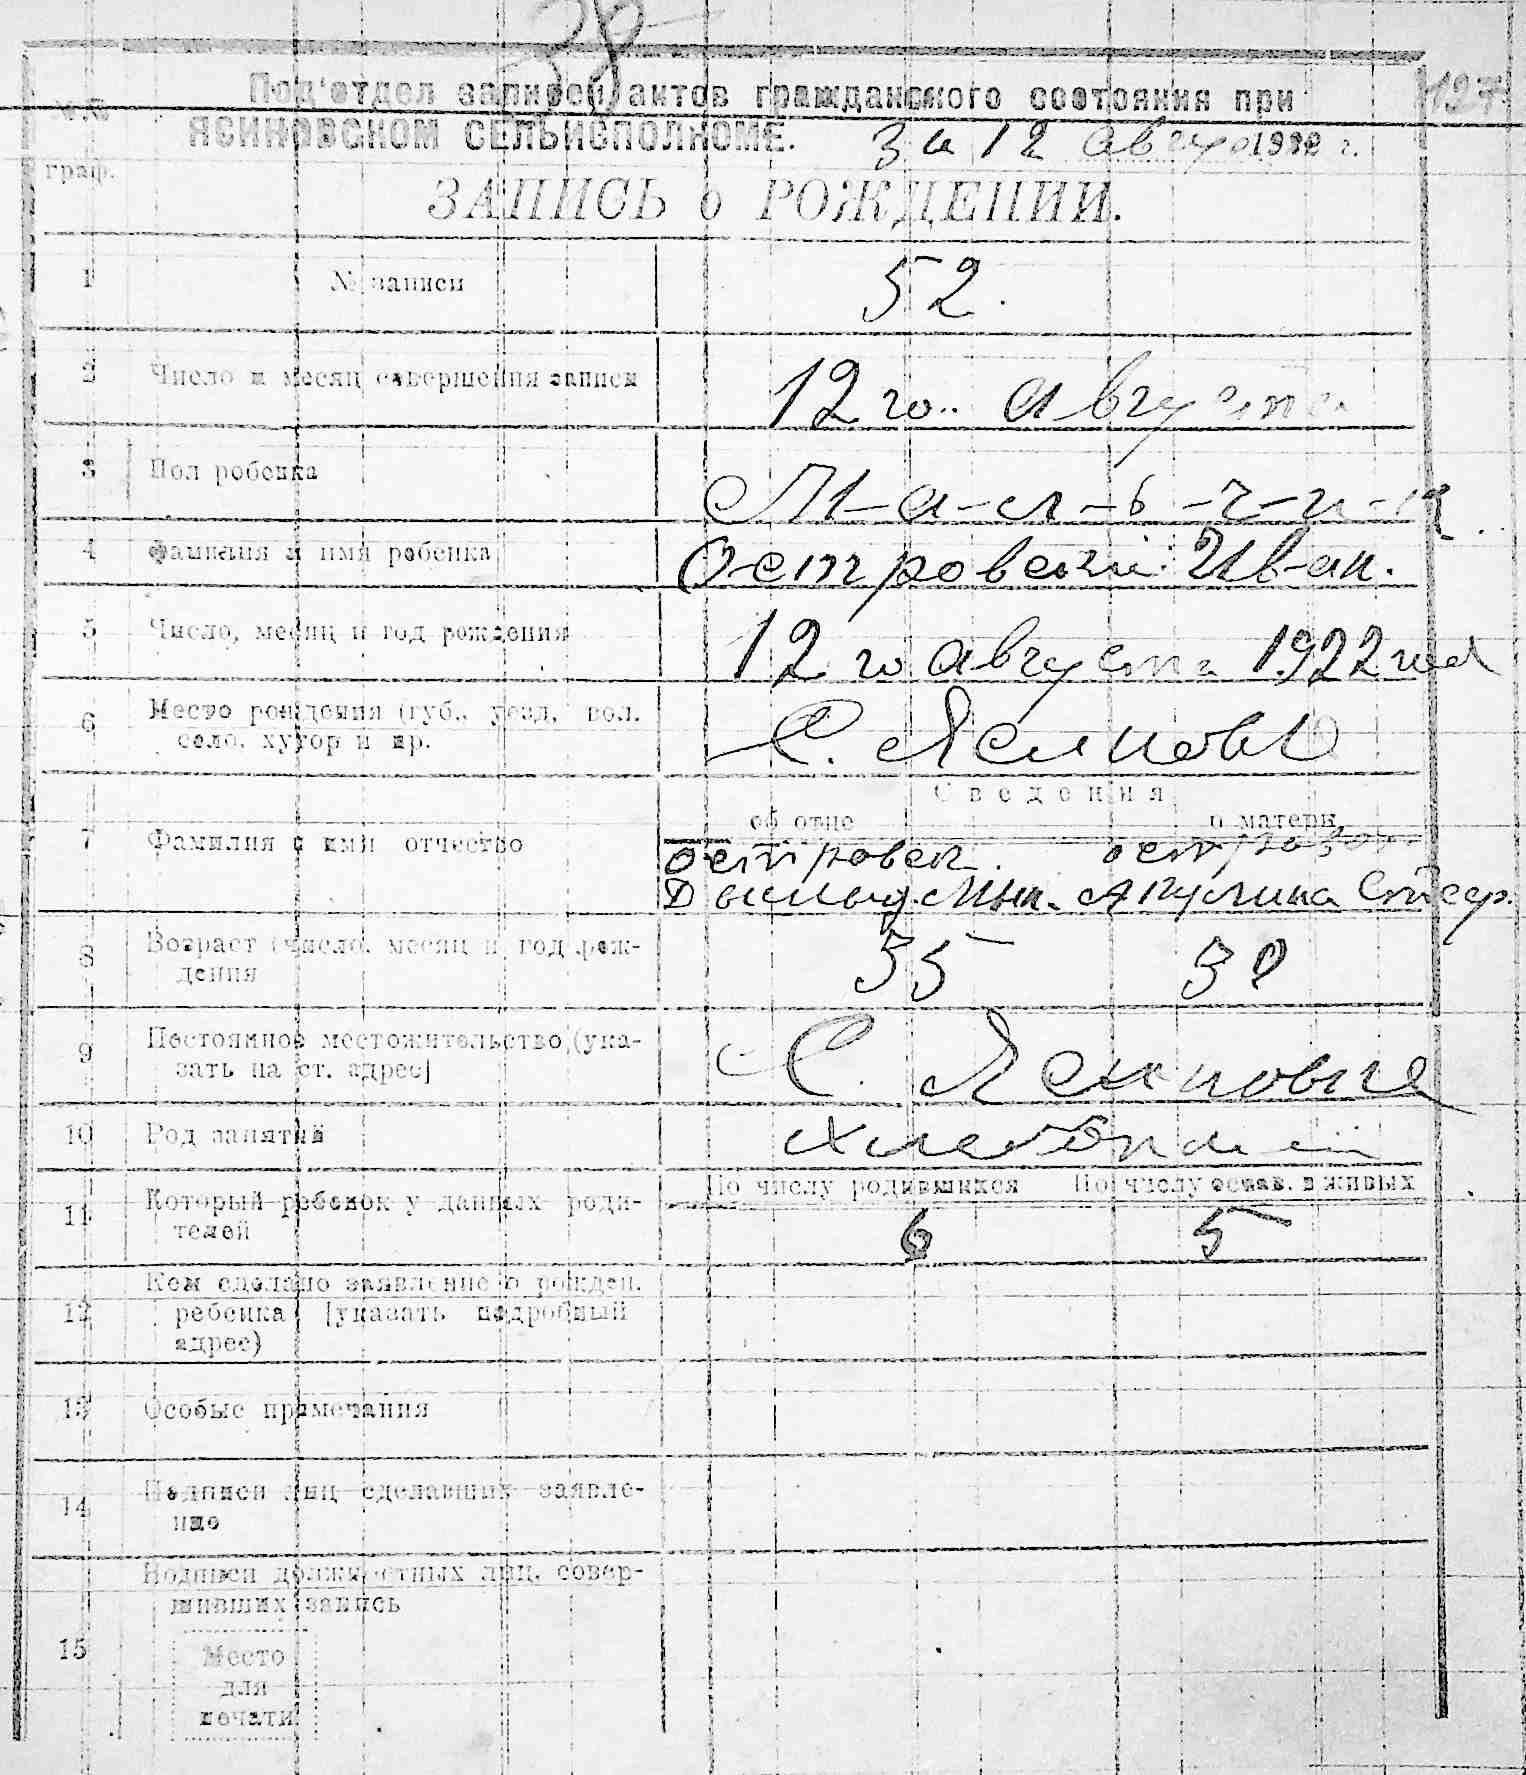 38
127
Под'отдел записей актов гражданского состояния при
ЯСИНОВСКОМ СЕЛЬИСПОЛКОМЕ.
За 12 Авгус 1922 г.
№ №
граф.
ЗАПИСЬ о РОЖДЕНИИ.
1 № записи 52.
2 Число и месяц совершения записи 12 го.. августа
3 Пол ребенка М-а-л-ь-ч-и-к
4 Фамилия и имя ребенка Островский Иван.
5 Число, месяц и год рождения 12 го августа 1922 год
6 Место рождения (губ., уезд, вол. С. Ясиново
село, хутор и пр.
Сведения
об отце о матери
7 Фамилия и имя отчество Островск. Островск.
Мин. Акулина
8 Возраст (число, месяц и год рож- 35 38
дения
9 Постоянное местожительство (ука- С. Ясиновка
зать на ст. адрес)
10 Род занятий
По числу родившихся По числу остав. в живых
11 Который ребенок у данных роди- 6 5
телей
Кем сделано заявление о рожден.
12 ребенка [указать подробный
адрес)
13 Особые примечания
14 Подписи лиц сделавших заявле-
ние
Подписи должностных лиц, совер-
шивших запись
15 Место
для
печати